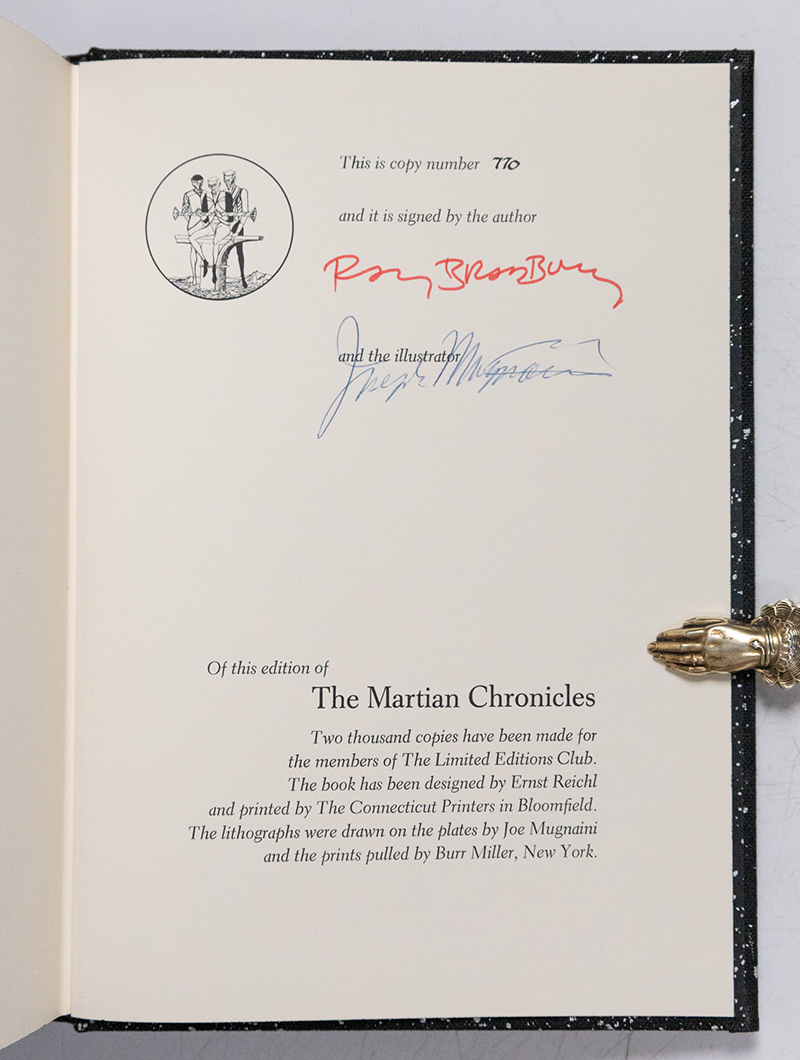 This is copy number 770
and it is signed by the author
Ray Bradbury
and the illustrator
Joseph Mugnaini
Of this edition of
The Martian Chronicles
Two thousand copies have been made for
the members of The Limited Editions Club.
The book has been designed by Ernst Reichl
and printed by The Connecticut Printers in Bloomfield.
The lithographs were drawn on the plates by Joe Mugnaini
and the prints pulled by Burr Miller, New York.